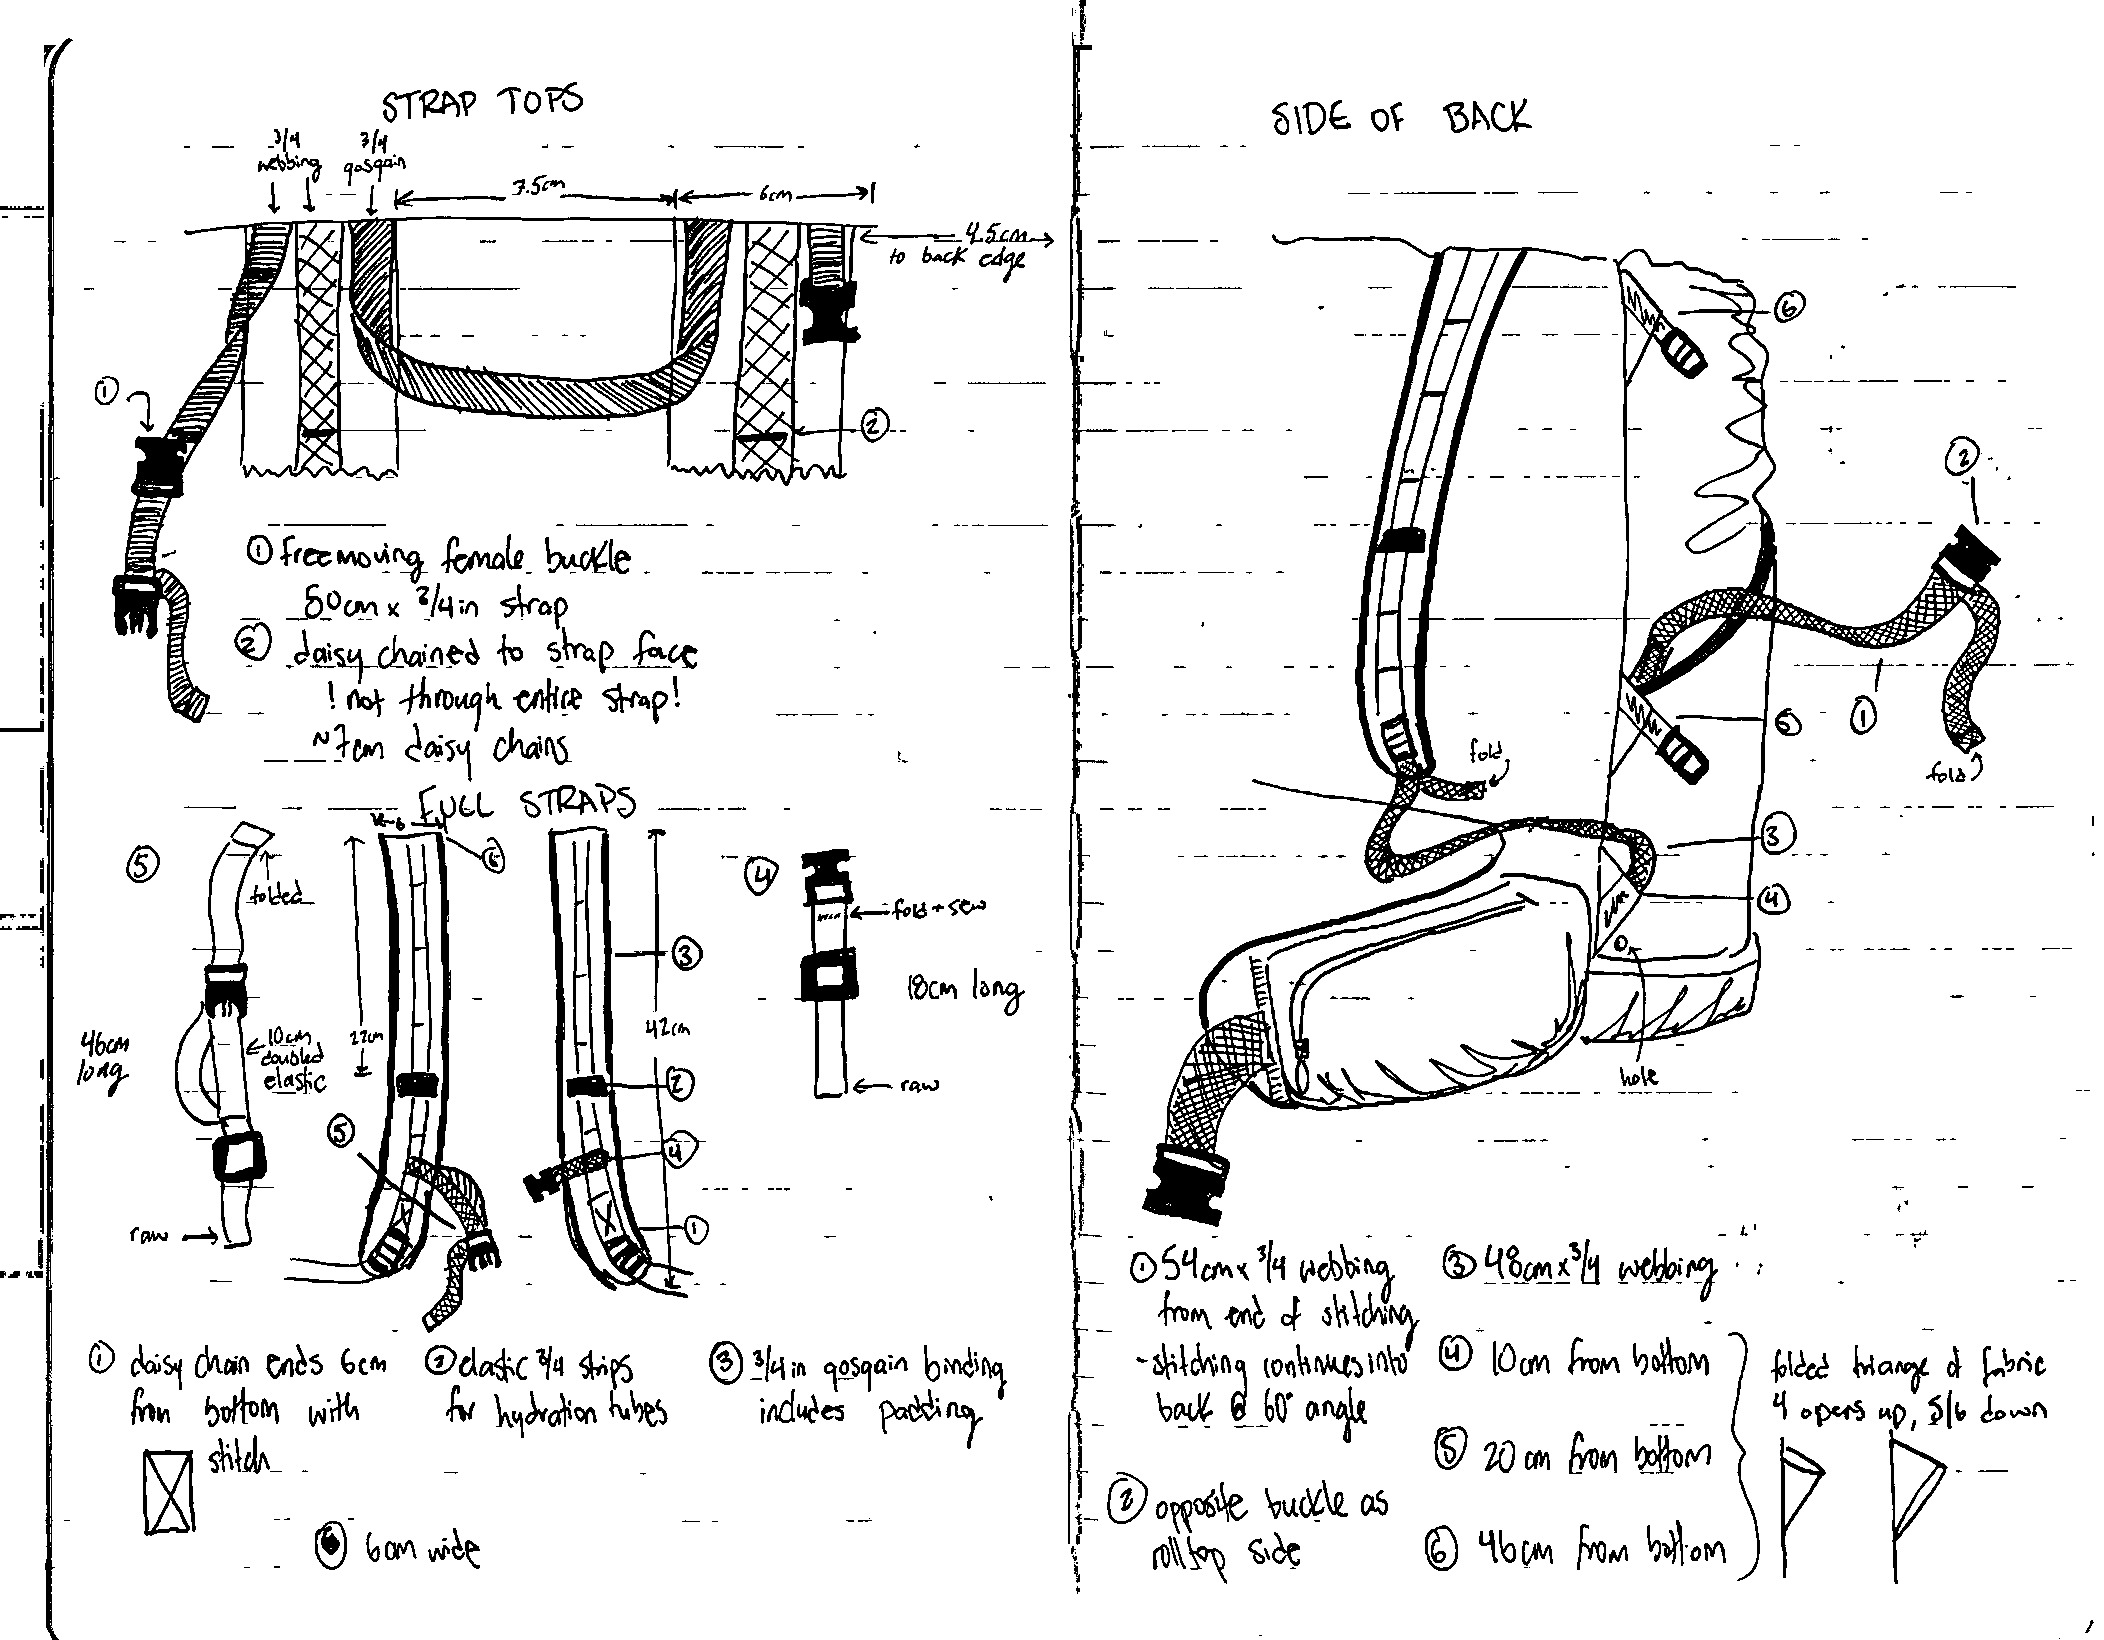 STRAP TOPS
3/4
webbing
3/4
gosgain
7.5cm
6cm
4.5cm
to back edge
①
②
① free moving female buckle
50cm x 3/4in strap
② daisy chained to strap face
! not through entire strap!
~7cm daisy chains
FULL STRAPS
⑤
folded
46cm
long
10cm
doubled
elastic
raw
6
⑥
22cm
⑤
③
42cm
②
④
①
④
fold + sew
18cm long
raw
① daisy chain ends 6cm
from bottom with
stitch
② elastic 3/4 strips
for hydration tubes
③ 3/4in gosgain binding
includes padding
6cm wide
SIDE OF BACK
⑥
②
①
⑤
fold
fold
③
④
hole
① 54cm x 3/4 webbing
from end of stitching
- stitching continues into
back @ 60° angle
② opposite buckle as
roll top side
③ 48cm x 3/4 webbing
④ 10cm from bottom
⑤ 20cm from bottom
⑥ 46cm from bottom
folded triange of fabric
4 opens up, 5/6 down